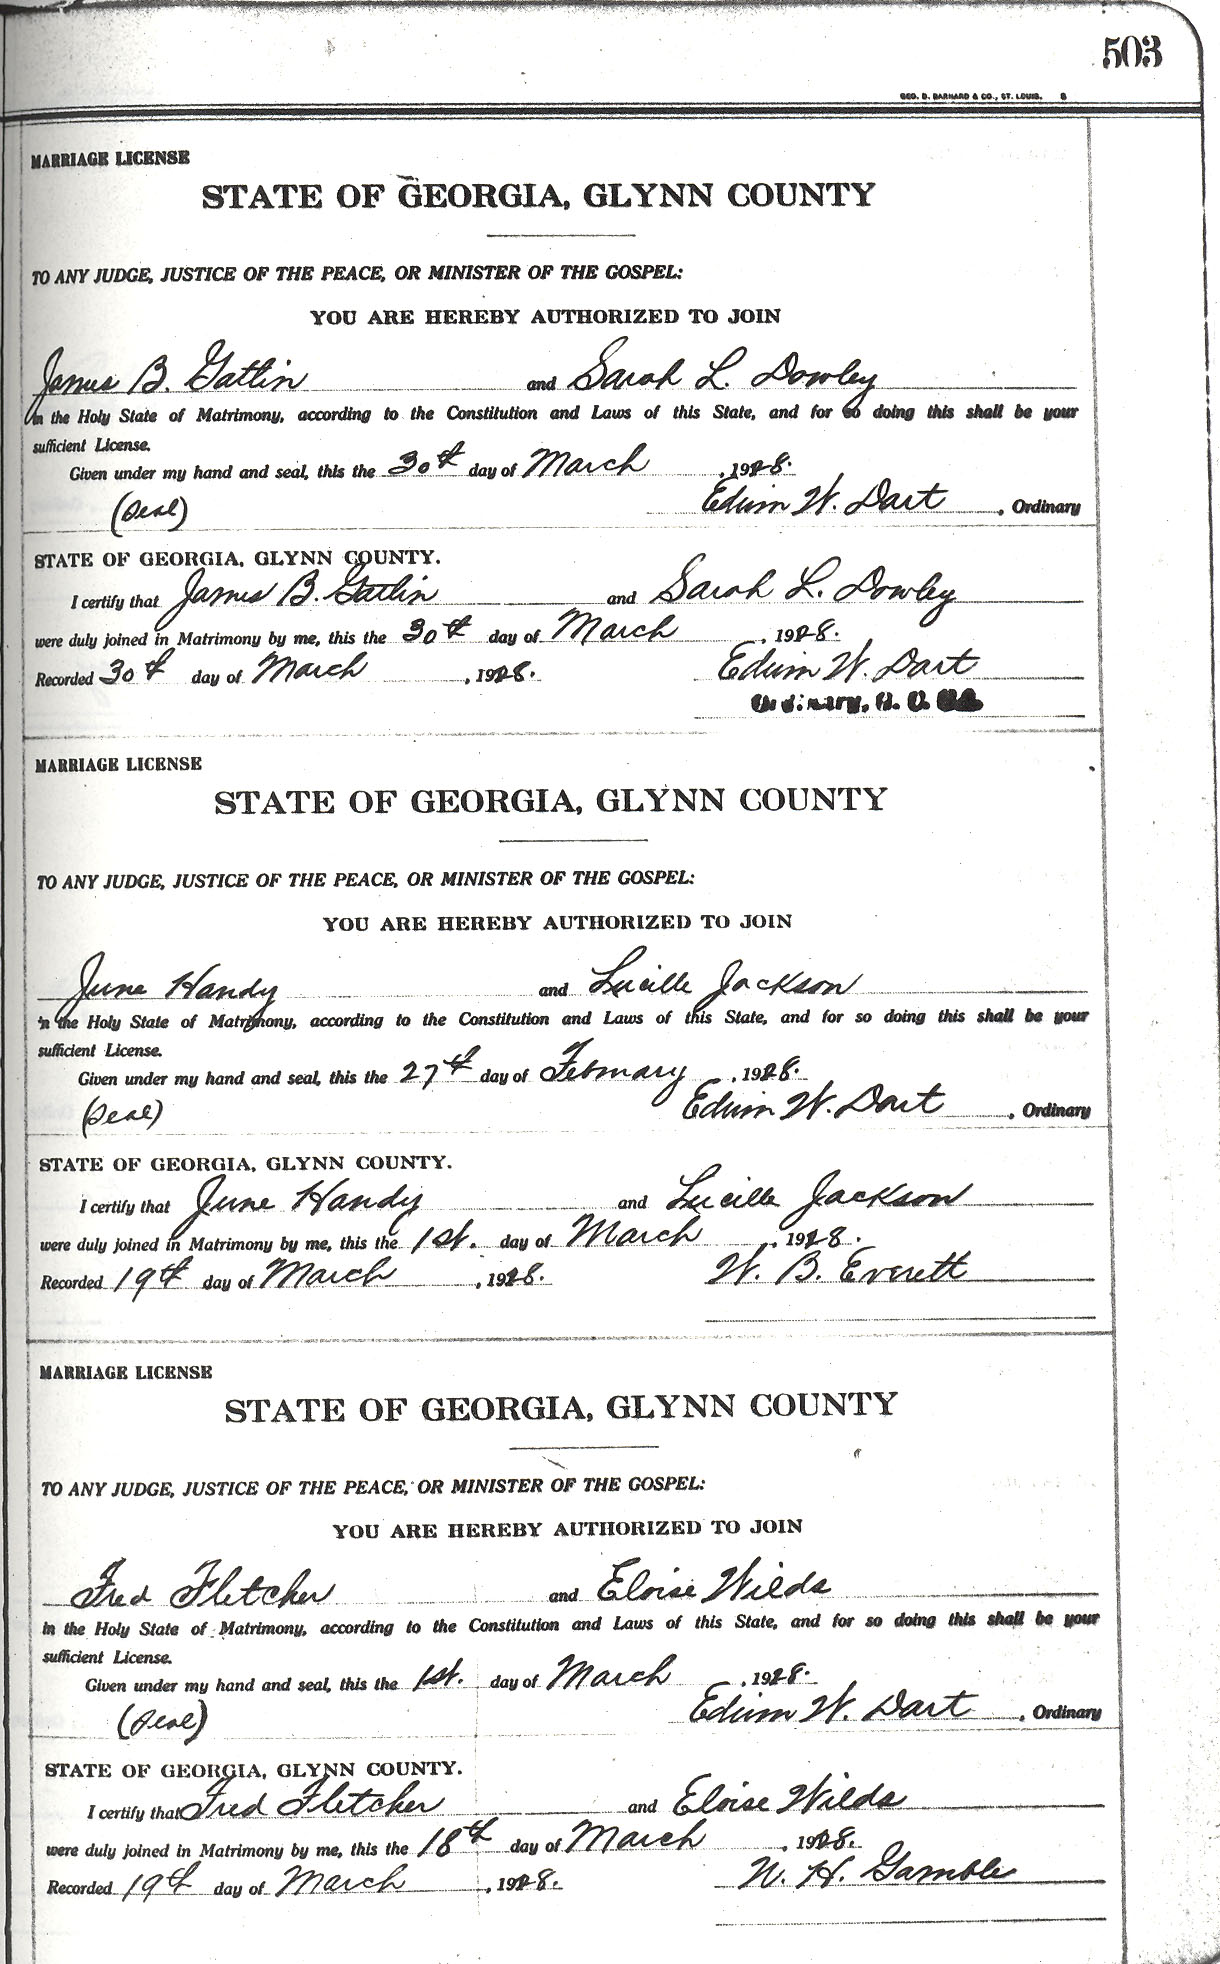 503
GEO. D. BARNARD & CO., ST. LOUIS. S
MARRIAGE LICENSE
STATE OF GEORGIA, GLYNN COUNTY
TO ANY JUDGE, JUSTICE OF THE PEACE, OR MINISTER OF THE GOSPEL:
YOU ARE HEREBY AUTHORIZED TO JOIN
James B. Gatlin and Sarah L. Dowley
in the Holy State of Matrimony, according to the Constitution and Laws of this State, and for so doing this shall be your
sufficient License.
Given under my hand and seal, this the 30th day of March, 1928.
(Seal) Edwin W. Dart, Ordinary
STATE OF GEORGIA, GLYNN COUNTY.
I certify that James B. Gatlin and Sarah L. Dowley
were duly joined in Matrimony by me, this the 30th day of March, 1928.
Recorded 30th day of March, 1928. Edwin W. Dart
Ordinary,
MARRIAGE LICENSE
STATE OF GEORGIA, GLYNN COUNTY
TO ANY JUDGE, JUSTICE OF THE PEACE, OR MINISTER OF THE GOSPEL:
YOU ARE HEREBY AUTHORIZED TO JOIN
June Handy and Lucille Jackson
in the Holy State of Matrimony, according to the Constitution and Laws of this State, and for so doing this shall be your
sufficient License.
Given under my hand and seal, this the 27th day of February, 1928.
(Seal) Edwin W. Dart, Ordinary
STATE OF GEORGIA, GLYNN COUNTY.
I certify that June Handy and Lucille Jackson
were duly joined in Matrimony by me, this the 1st. day of March, 1928.
Recorded 19th day of March, 1928. W. B. Everett
MARRIAGE LICENSE
STATE OF GEORGIA, GLYNN COUNTY
TO ANY JUDGE, JUSTICE OF THE PEACE, OR MINISTER OF THE GOSPEL:
YOU ARE HEREBY AUTHORIZED TO JOIN
Fred Fletcher and Eloise Wilds
in the Holy State of Matrimony, according to the Constitution and Laws of this State, and for so doing this shall be your
sufficient License.
Given under my hand and seal, this the 1st. day of March, 1928.
(Seal) Edwin W. Dart, Ordinary
STATE OF GEORGIA, GLYNN COUNTY.
I certify that Fred Fletcher and Eloise Wilds
were duly joined in Matrimony by me, this the 18th day of March, 1928.
Recorded 19th day of March, 1928. W. H. Gamble